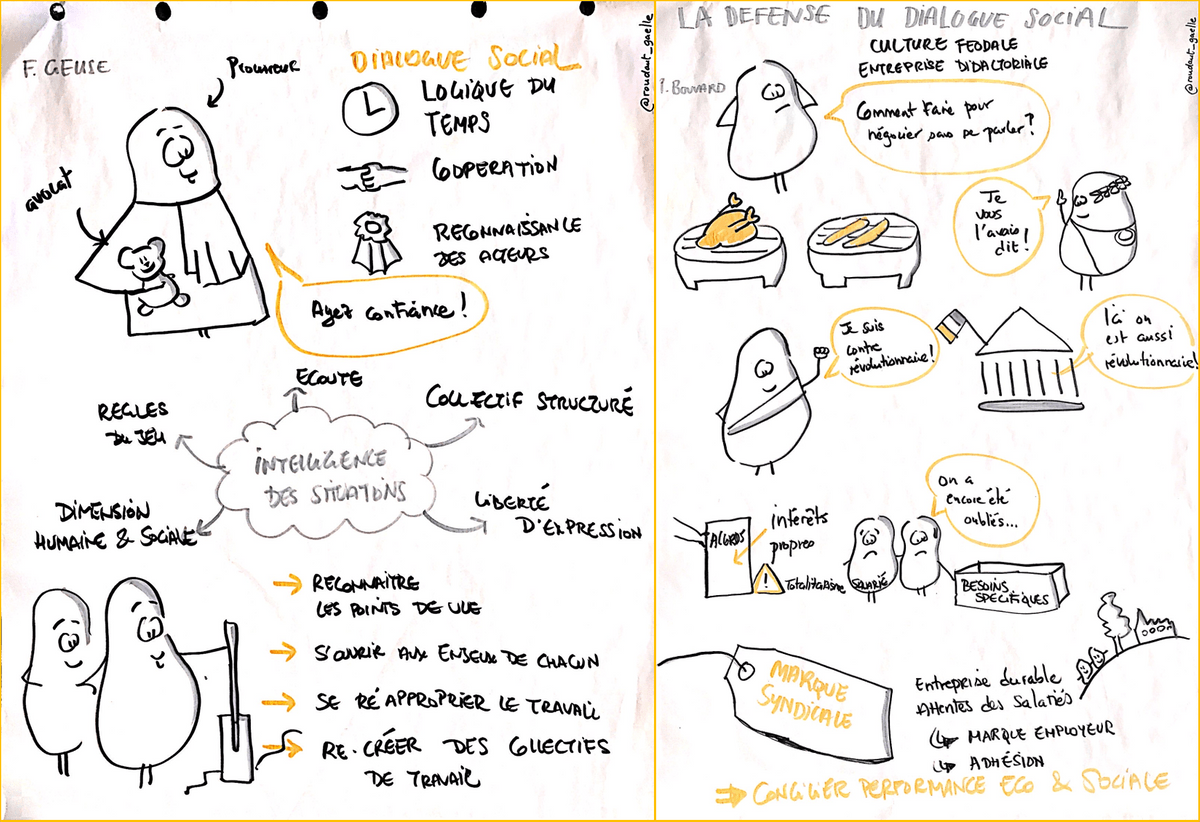 F. GEUSE
PROCUREUR
avocat
DIALOGUE SOCIAL
LOGIQUE DU
TEMPS
COOPERATION
RECONNAISSANCE
DES ACTEURS
Ayez confiance !
ECOUTE
REGLES
DU JEU
COLLECTIF STRUCTURÉ
INTELLIGENCE
DES SITUATIONS
DIMENSION
HUMAINE & SOCIALE
LIBERTÉ
D'EXPRESSION
→ RECONNAITRE
LES POINTS DE VUE
→ S'OUVRIR AUX ENJEUX DE CHACUN
→ SE RÉAPPROPRIER LE TRAVAIL
→ RE-CRÉER DES COLLECTIFS
DE TRAVAIL
@roudaut_gaelle
LA DEFENSE DU DIALOGUE SOCIAL
CULTURE FEODALE
ENTREPRISE DIDACTORIALE
BOUVARD
Comment faire pour
négocier sans se parler ?
Je
vous
l'avais
dit !
Je suis
contre
révolutionnaire !
Ici on
est aussi
révolutionnaire !
On a
encore été
oubliés...
ACCORDS
intérêts
propres
!
Totalitarisme
SALARIÉ
BESOINS
SPÉCIFIQUES
MARQUE
SYNDICALE
Entreprise durable
Attentes des Salariés
↳ MARQUE EMPLOYEUR
↳ ADHÉSION
⇒ CONCILIER PERFORMANCE ECO & SOCIALE
@roudaut_gaelle